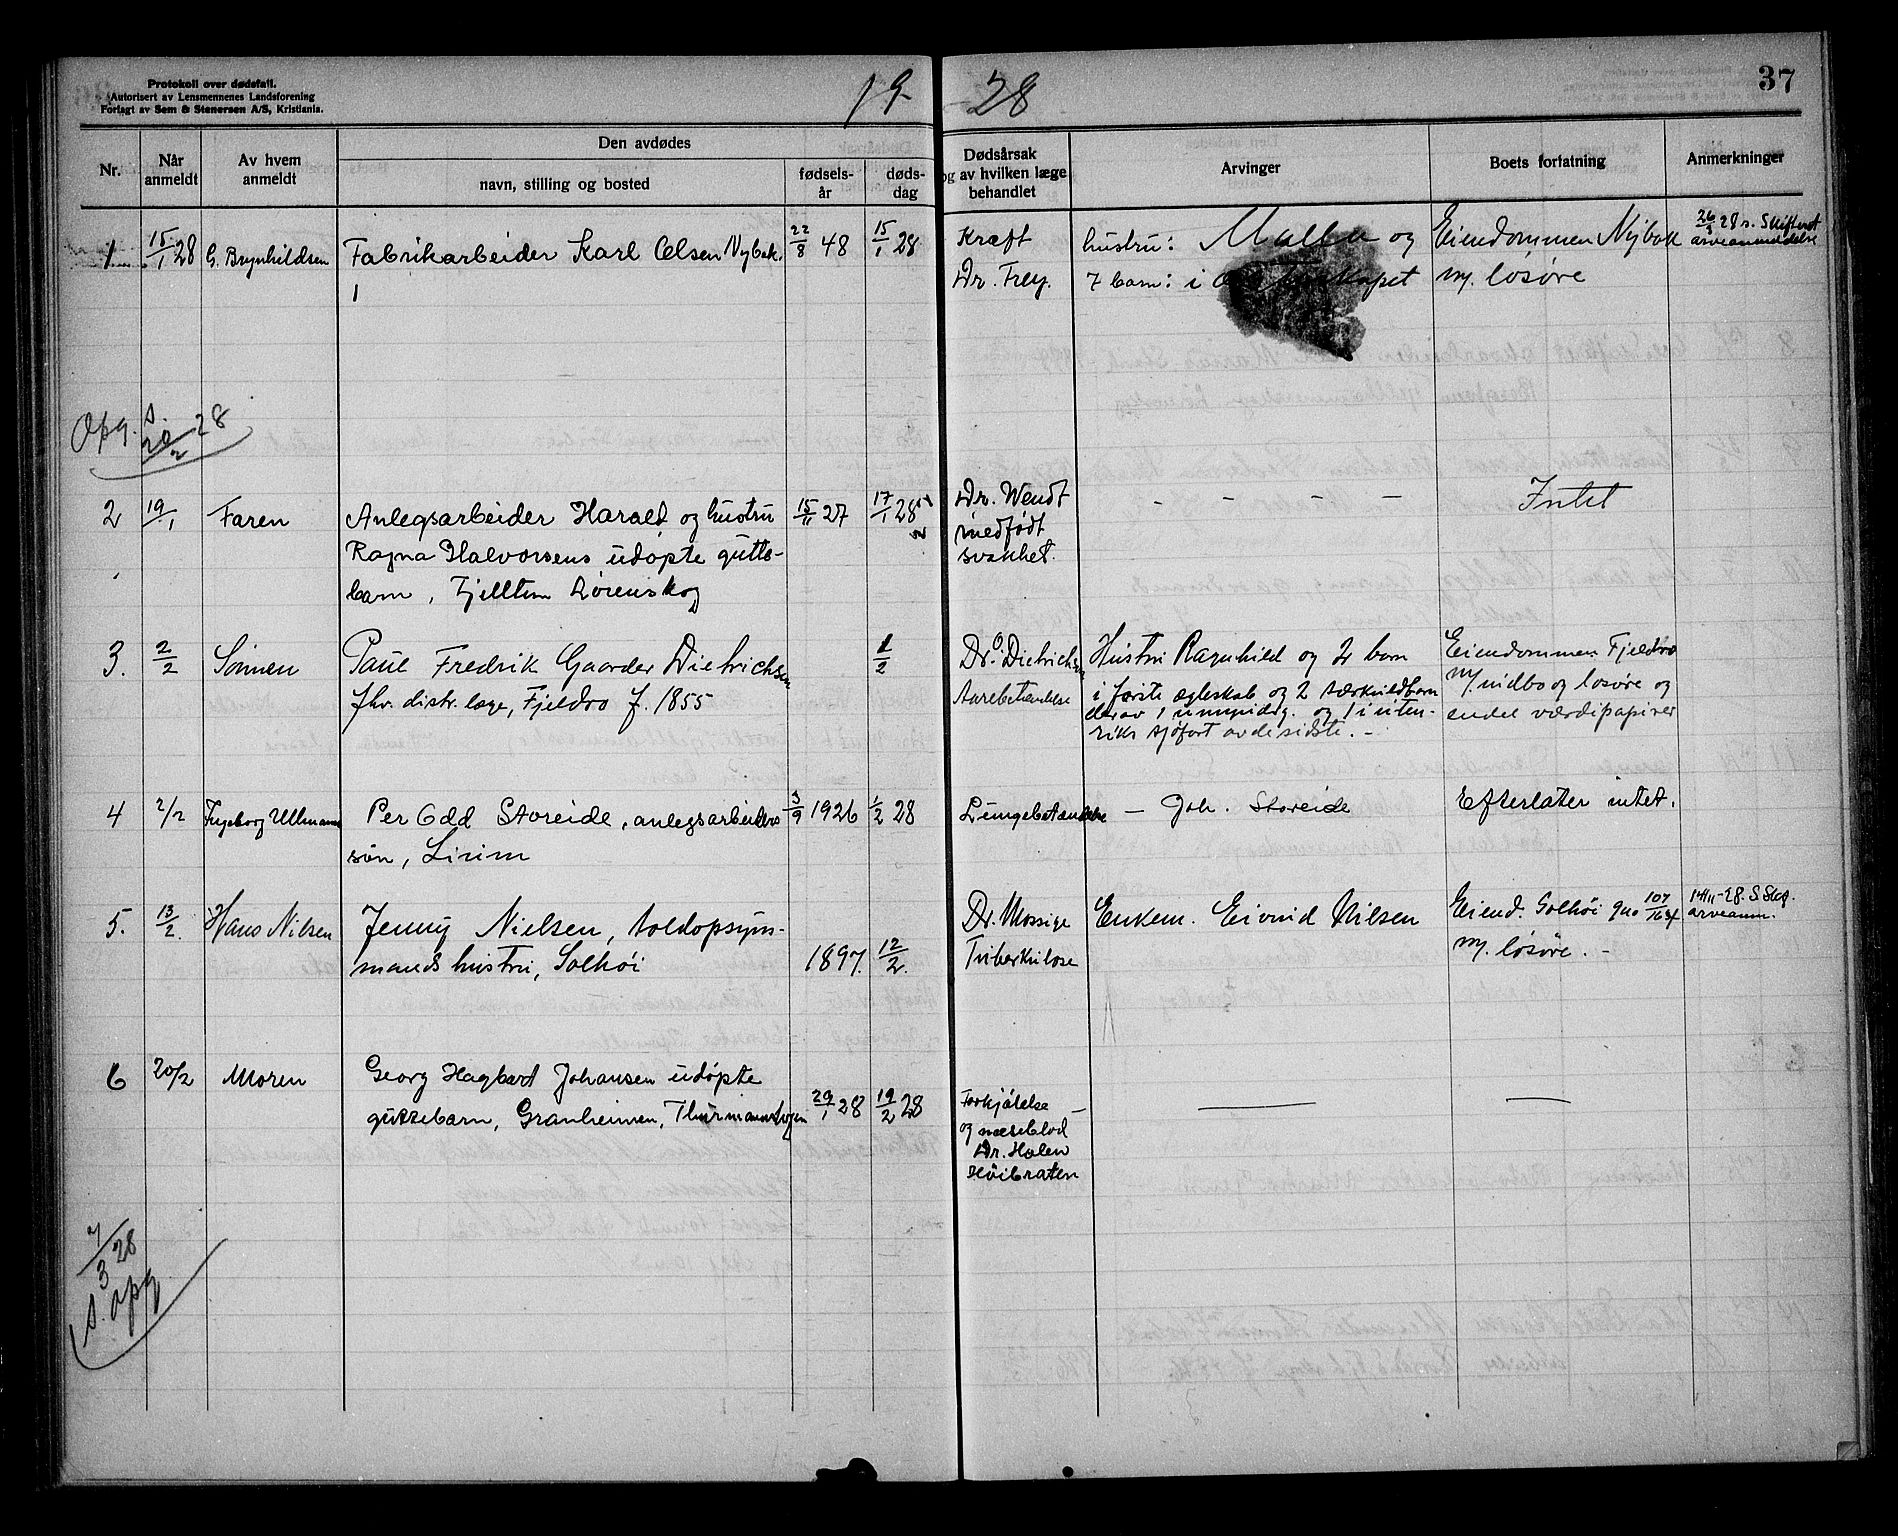 Protokoll over dødsfall.
Autorisert av Lensmennenes Landsforening
Forlagt av Sem & Stenersen A/S, Kristiania.
19 - 28
37
Nr.
Når anmeldt
Av hvem anmeldt
Den avdødes
navn, stilling og bosted
fødselsår
dødsdag
Dødsårsak og av hvilken læge behandlet
Arvinger
Boets forfatning
Anmerkninger
1 15/1 28 G. Brynhildsen Fabrikarbeider Karl Olsen Nybak. 22/8 48 15/1 28 Kræft hustru: Malla og Eiendommen Nybak 26/3 28 s. Skifteret
1 Dr. Frey. 7 barn: i m/ løsøre arveanmeldelse
Opg. s. 20/2 28
2 19/1 Faren Anlegsarbeider Harald og hustru 15/11 27 17/1 28 Dr. Wendt - - - - Intet
Ragna Halvorsens udøpte gutte- medfødt
barn, Fjelltun Lørenskog svakhet.
3. 2/2 Sønnen Paul Fredrik Gaarder Dietrichsen 1/2 Dr. O. Dietrichsen Hustru Ragnhild og 2 barn Eiendommen Fjeldro
fhv. distr. læge, Fjeldro f. 1855 Aarebetændelse i første ægteskab og 2 særkuldbarn m/ indbo og løsøre og
derav 1 umyndig. og 1 i uten- endel værdipapirer
riks sjøfart av de sidste. -
4 2/2 Ingeborg Ullmann Per Odd Storeide, anlegsarbeiders 3/9 1926 1/2 28 Lungebetændelse - Joh. Storeide Efterlater intet.
søn, Lirim
5. 13/2. Hans Nilsen Jenny Nielsen, toldopsyns- Dr. Mossige Enkem. Eivind Nilsen Eiend. Solhøi gno 107/163 14/11-28. S. Skf.
mands hustru, Solhøi 1897. 12/2. Tuberkulose m/ løsøre. - arveanm.
6 20/2 Moren Georg Hagbart Johansen udøpte
guttebarn, Granheimen, Thurmannskogen 29/1 28 19/2 28 Forkjølelse -
og næseblod
Dr. Holen
Høibraten
2/3 28
s. opg.